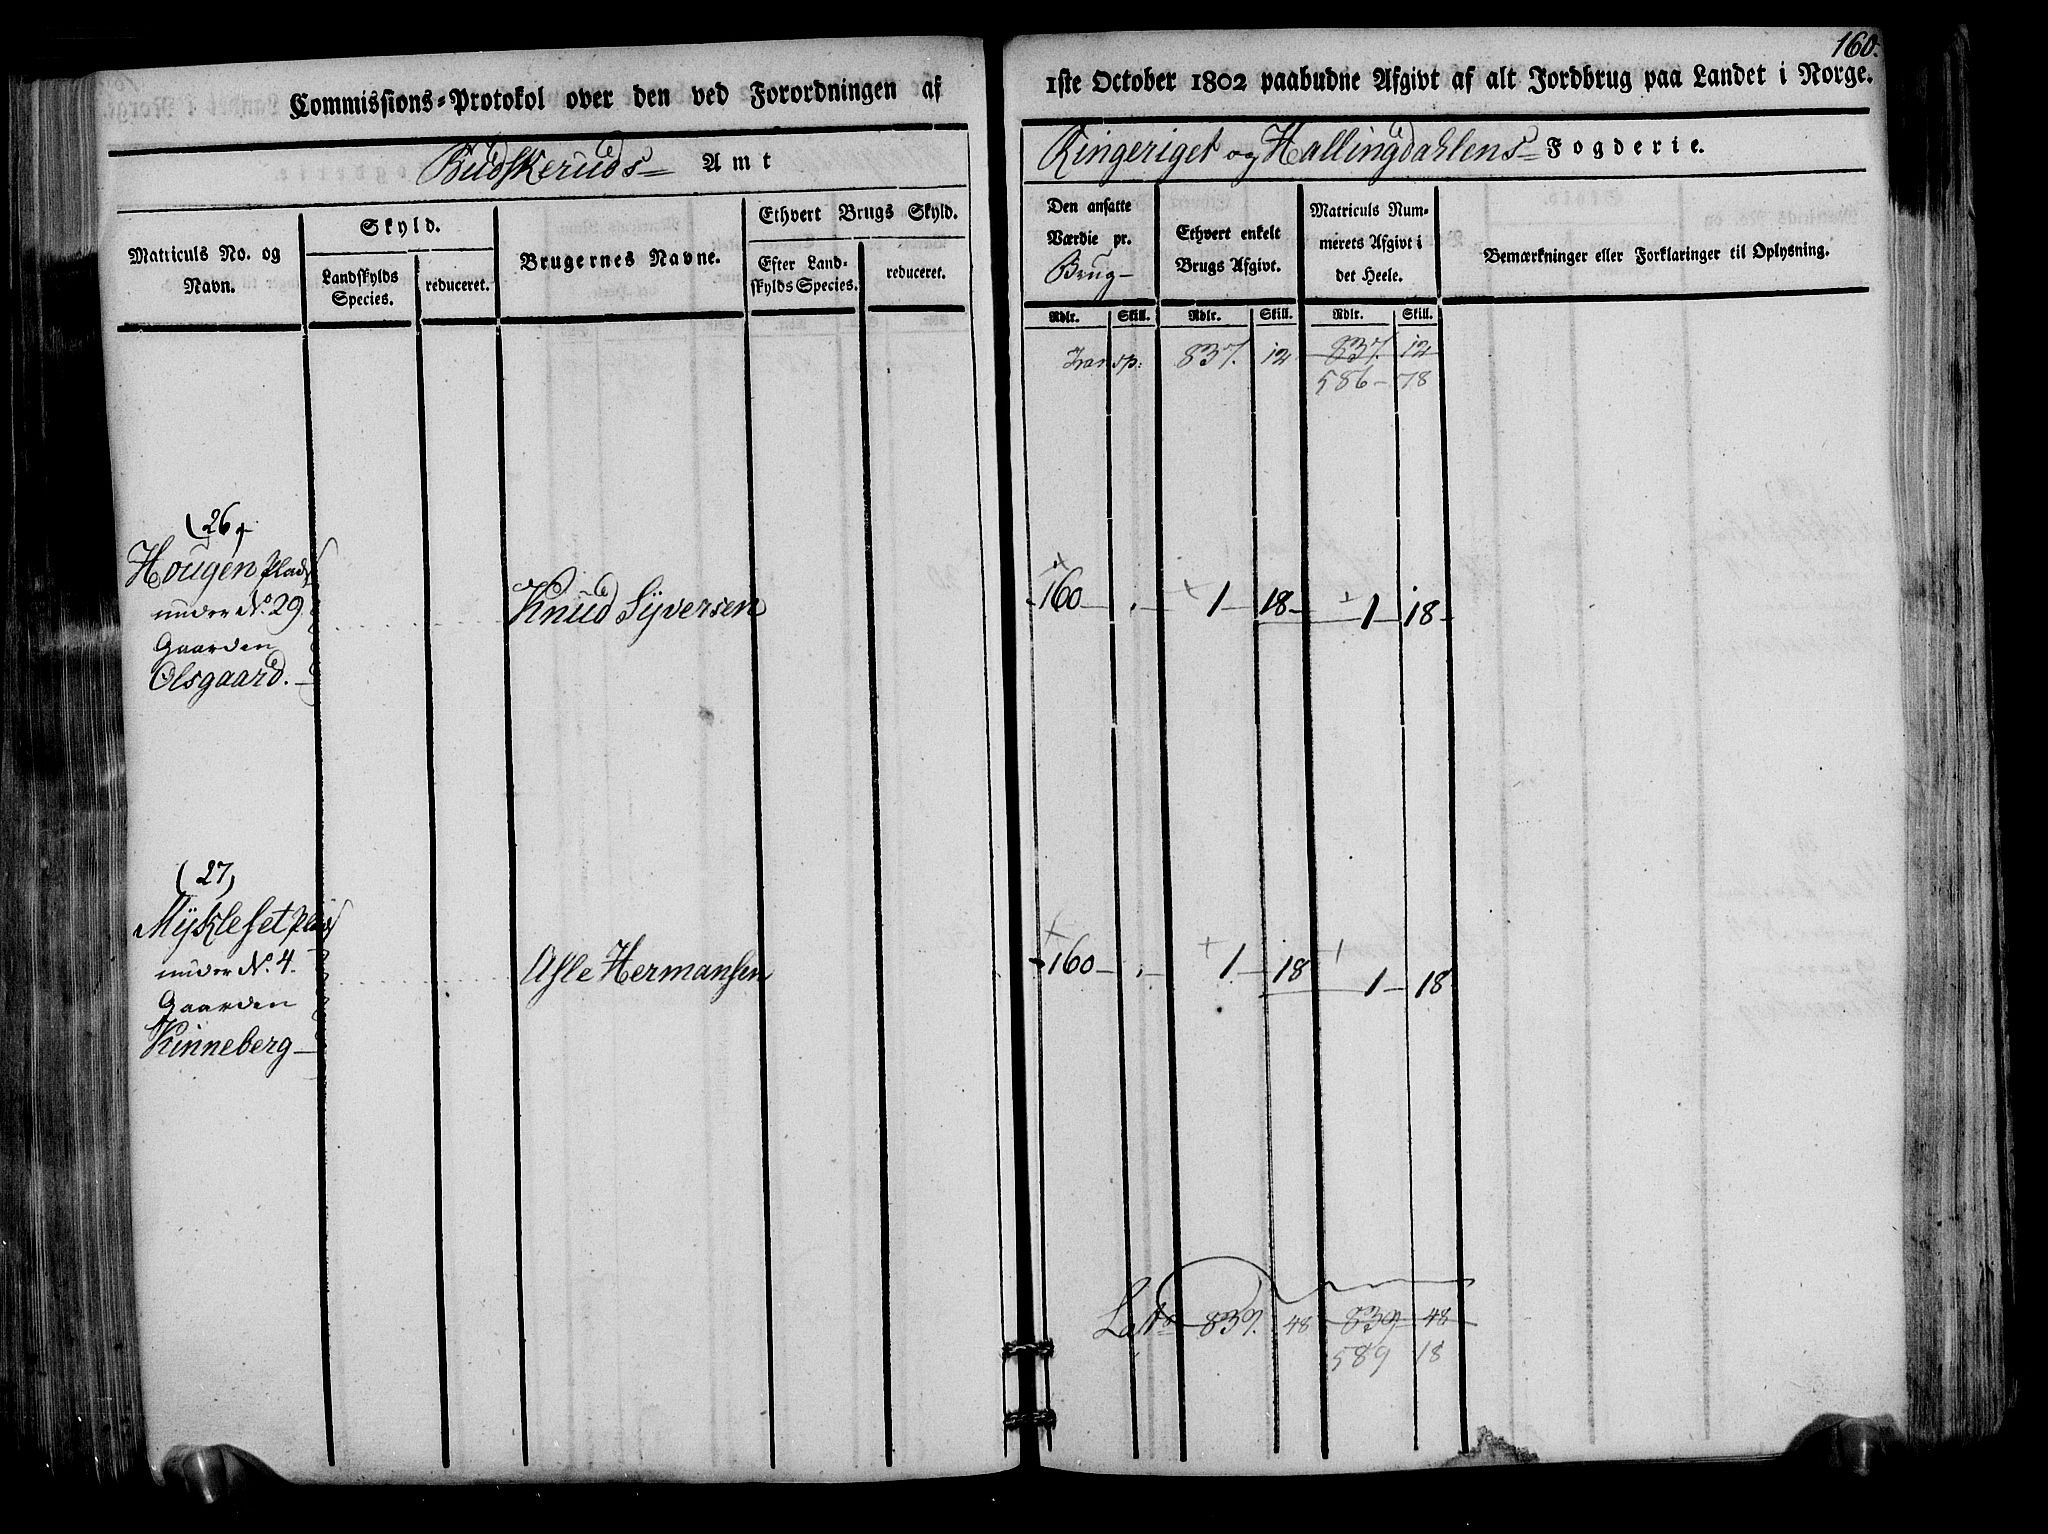 160.
Commissions-Protokol over den ved Forordningen af
1ste October 1802 paabudne Afgivt af alt Jordbrug paa Landet i Norge.
Budskeruds Amt
Ringeriget og Hallingdahlens Fogderie.
Matriculs No. og Navn.
Skyld.
Landskylds Species.
reduceret.
Brugernes Navne.
Ethvert Brugs Skyld.
Efter Landskylds Species.
reduceret.
Den ansatte Værdie pr. Brug
Ethvert enkelt Brugs Afgivt.
Matriculs Nummerets Afgivt i det Heele.
Bemærkninger eller Forklaringer til Oplysning.
Rdlr. Skill. Rdlr. Skill. Rdlr. Skill.
Transp: 837. 12 837. 12
586 - 78
(26)
Hougen Plads
under No. 29
Gaarden
Olsgaard.
Knud Syversen
160 - 1 - 18 - 1 - 18 -
(27)
Mykleset Plads
under No. 4.
Gaarden
Vinneberg
Asle Hermansen
160 - 1 - 18 1 - 18
Lats 839. 48 839. 48
589 18